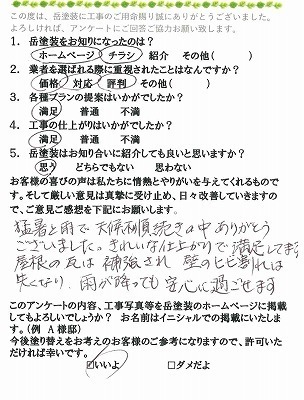 この度は、岳塗装に工事のご用命賜り誠にありがとうございました。
よろしければ、アンケートにご回答ご協力お願い致します。
1. 岳塗装をお知りになったのは？
ホームページ チラシ 紹介 その他( )
2. 業者を選ばれる際に重視されたことはなんですか？
価格 対応 評判 その他( )
3. 各種プランの提案はいかがでしたか？
満足 普通 不満
4. 工事の仕上がりはいかがでしたか？
満足 普通 不満
5. 岳塗装はお知り合いに紹介しても良いと思いますか？
思う どちらでもない 思わない
お客様の喜びの声は私たちに情熱とやりがいを与えてくれるものです。そして厳しい意見は真摯に受け止め、日々改善していきますので、ご意見ご感想を下記にお願いします。
猛暑と雨で天候不順続きの中ありがとう
ございました。きれいな仕上がりで満足してます
屋根の瓦は補強され 壁のヒビ割れは
失くなり、雨が降っても安心に過ごせます
このアンケートの内容、工事写真等を岳塗装のホームページに掲載
してもよろしいでしょうか？ お名前はイニシャルでの掲載にいたしま
す。(例 A 様邸)
今後塗り替えをお考えのお客様のご参考になりますので、許可いた
だければ幸いです。
☑いいよ □ダメだよ